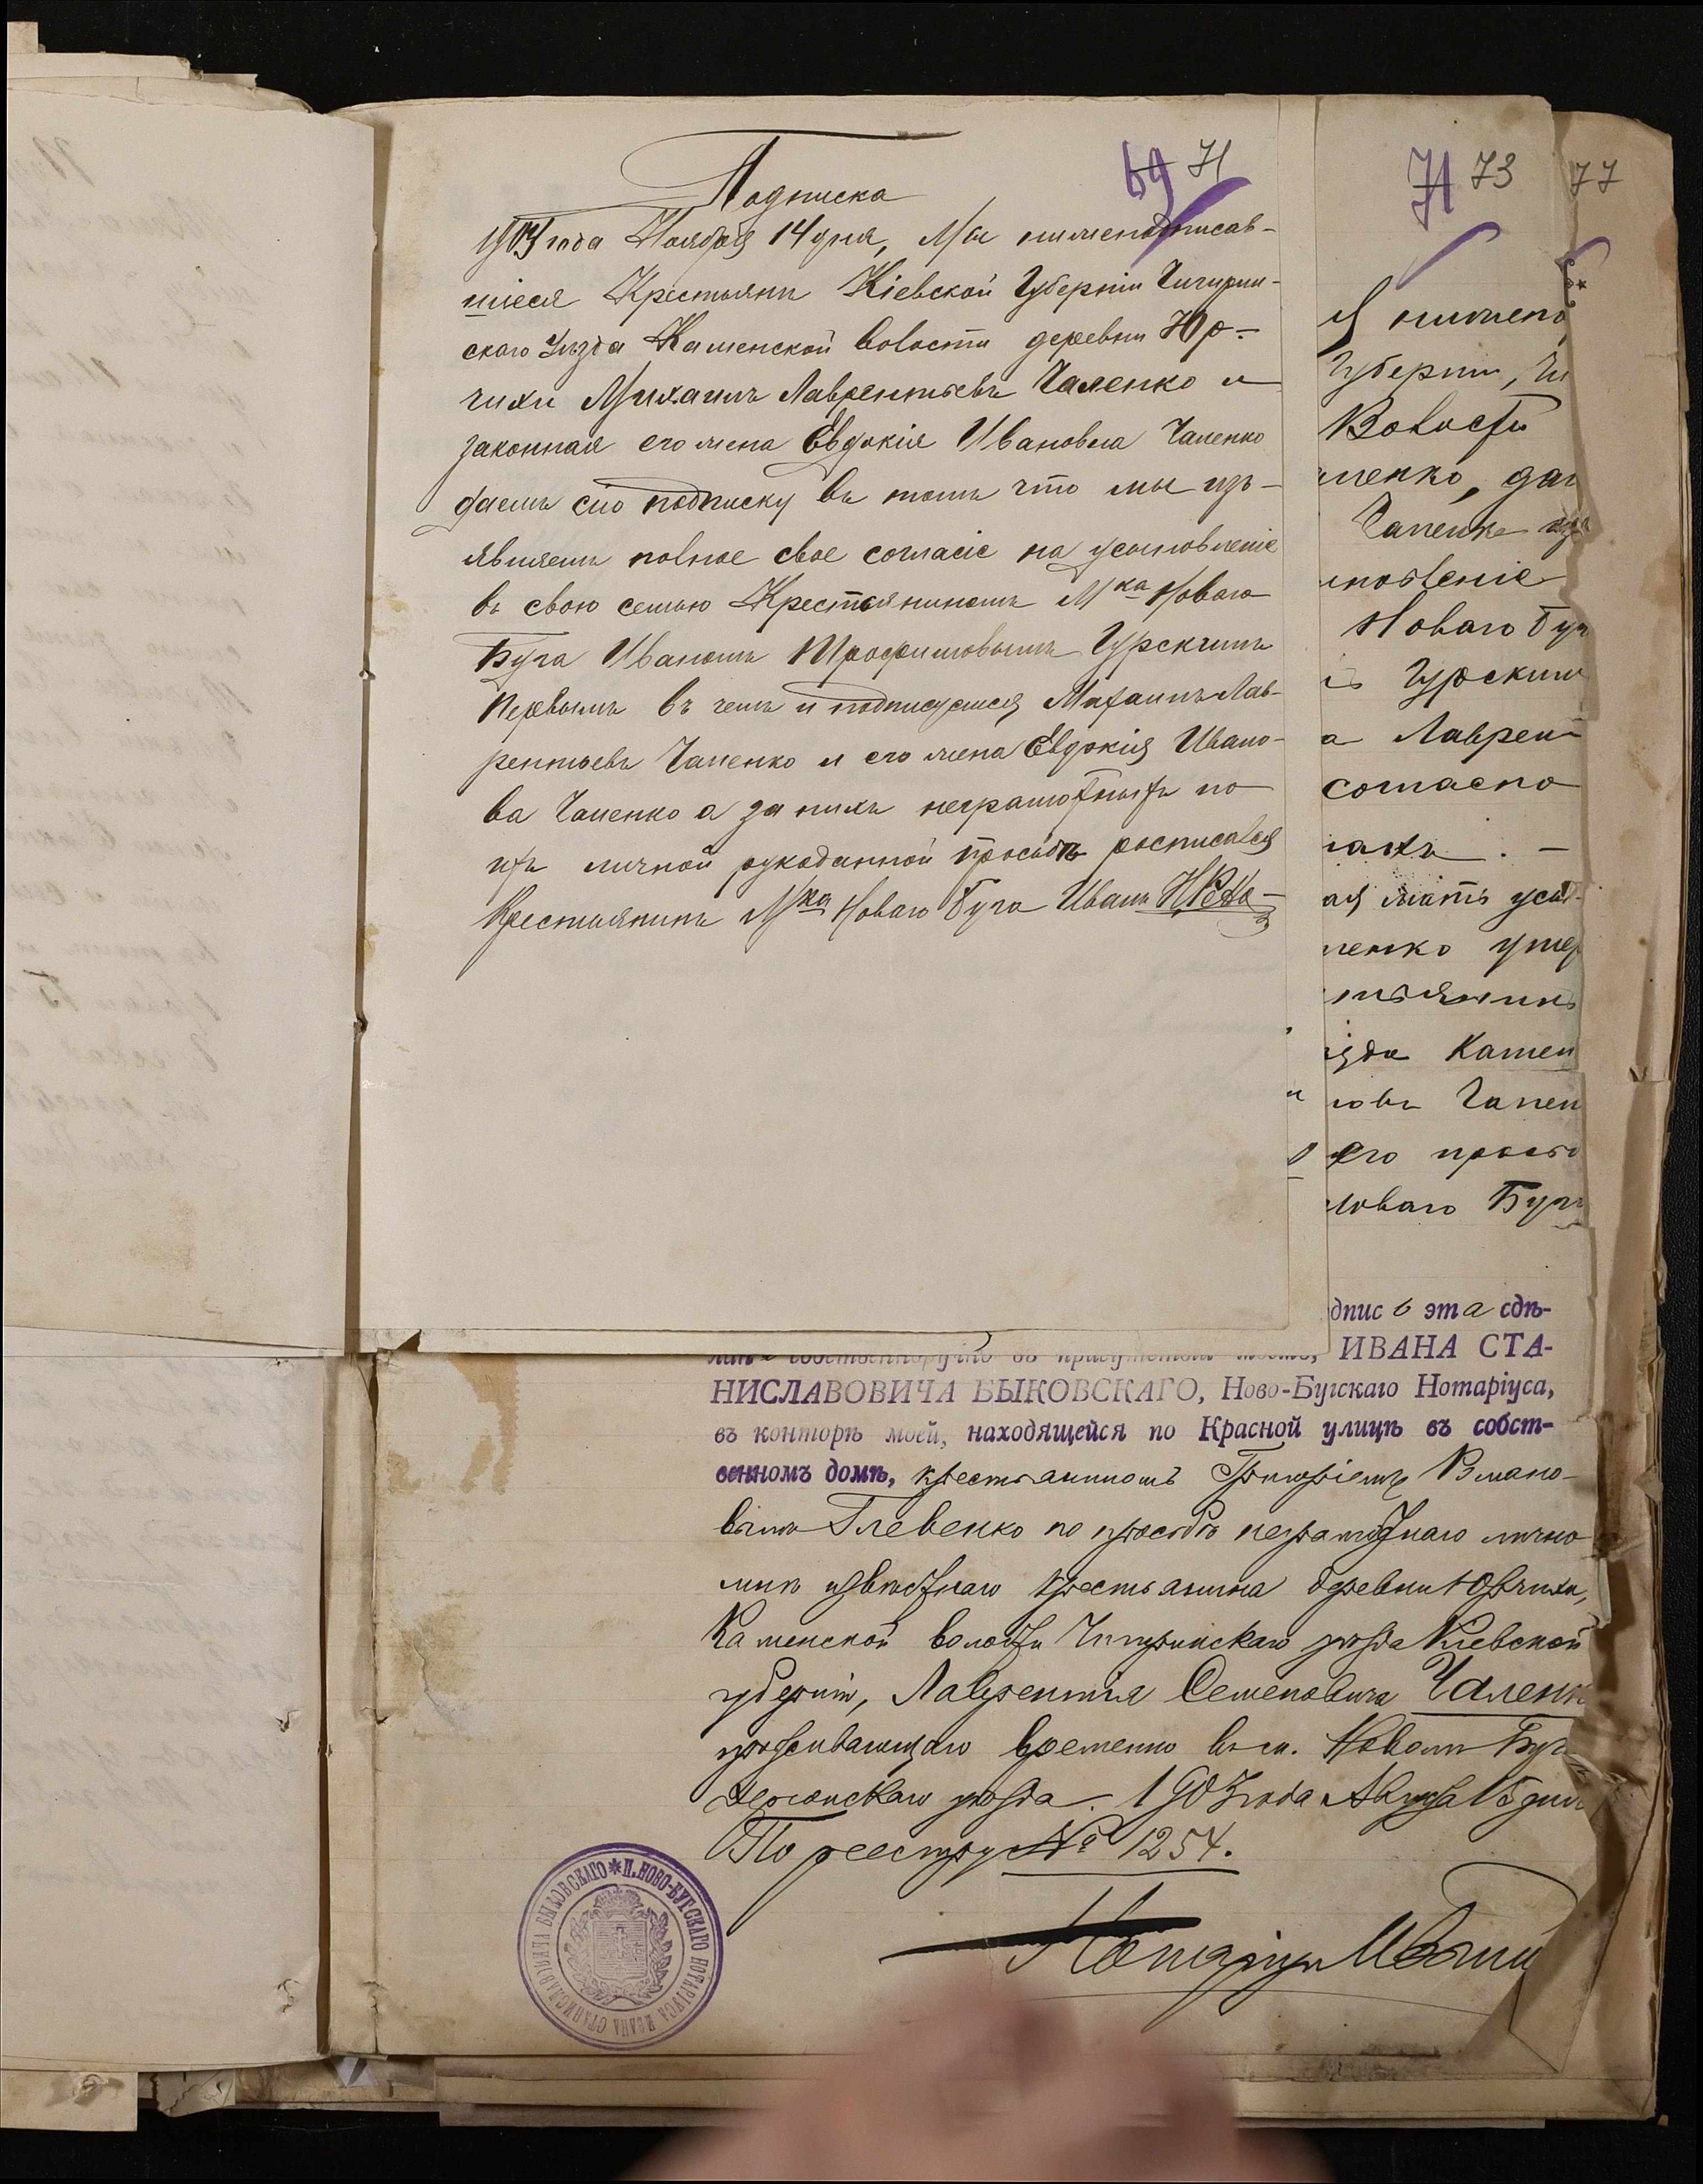 69 71
Подписка
1903 года Ноября 14 дня, Мы нижеподписав-
шіеся Крестьяне Кіевской Губерніи Чигирин-
скаго Уѣзда Каменской волости деревни Юр-
чихи Михаилъ Лаврентьевъ Чаленко и
законная его жена Евдокія Иванова Чаленко
даемъ сію подписку въ томъ что мы изъ-
являемъ полное свое согласіе на усыновленіе
въ свою семью Крестьяниномъ М^ка Новаго
Буга Иваномъ Трофимовымъ Гурскимъ
Первымъ въ чемъ и подписуемся Михаилъ Лав-
рентьевъ Чаленко и его жена Евдокія Ивано-
ва Чаленко а за нихъ неграмотныхъ по
ихъ личной рукоданной просьбѣ росписался
Крестьянинъ М^ка Новаго Буга Иванъ
71 73
77
Я нижепо
Губерніи, Чи
Волости
ленко, да
Чаленко
иновленіе
Новаго Буг
Гурским
а Лаврен
согласно
ая мать усы
ленко умер
стьянинъ
ѣзда Камен
новъ Чален
его просьб
Новаго Буг
дпись эта сдѣ-
лана собственноручно въ присутствіи моемъ, ИВАНА СТА-
НИСЛАВОВИЧА БЫКОВСКАГО, Ново-Бугскаго Нотаріуса,
въ конторѣ моей, находящейся по Красной улицѣ въ собст-
венномъ домѣ, крестьяниномъ Григоріемъ
вымъ Глевенко по просьбѣ неграмотнаго лично
мнѣ извѣстнаго крестьянина деревни Юрчихи,
Каменской волости Чигиринскаго уѣзда Кіевской
губерніи, Лаврентія Семеновича Чаленк
проживающаго временно въ м. Новомъ Буг
Херсонскаго уѣзда. 1903 года Августа 16 дня
По реестру № 1254.
Нотаріусъ
И.НОВО-БУГСКАГО НОТАРІУСА ИВАНА СТАНИСЛАВОВИЧА БЫКОВСКАГО